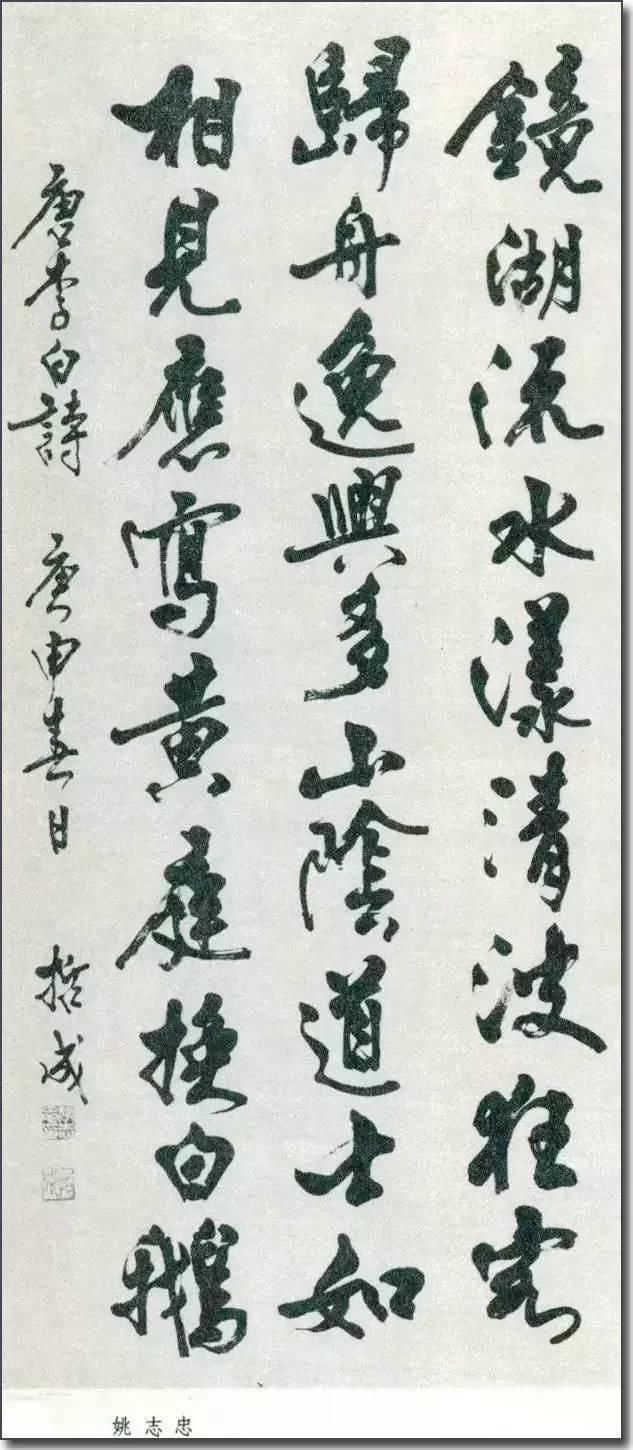 鏡湖流水漾清波狂客
歸舟逸興多山陰道士如
相見應寫黄庭換白鵝
唐李白詩 庚申春日 哲成
姚志忠